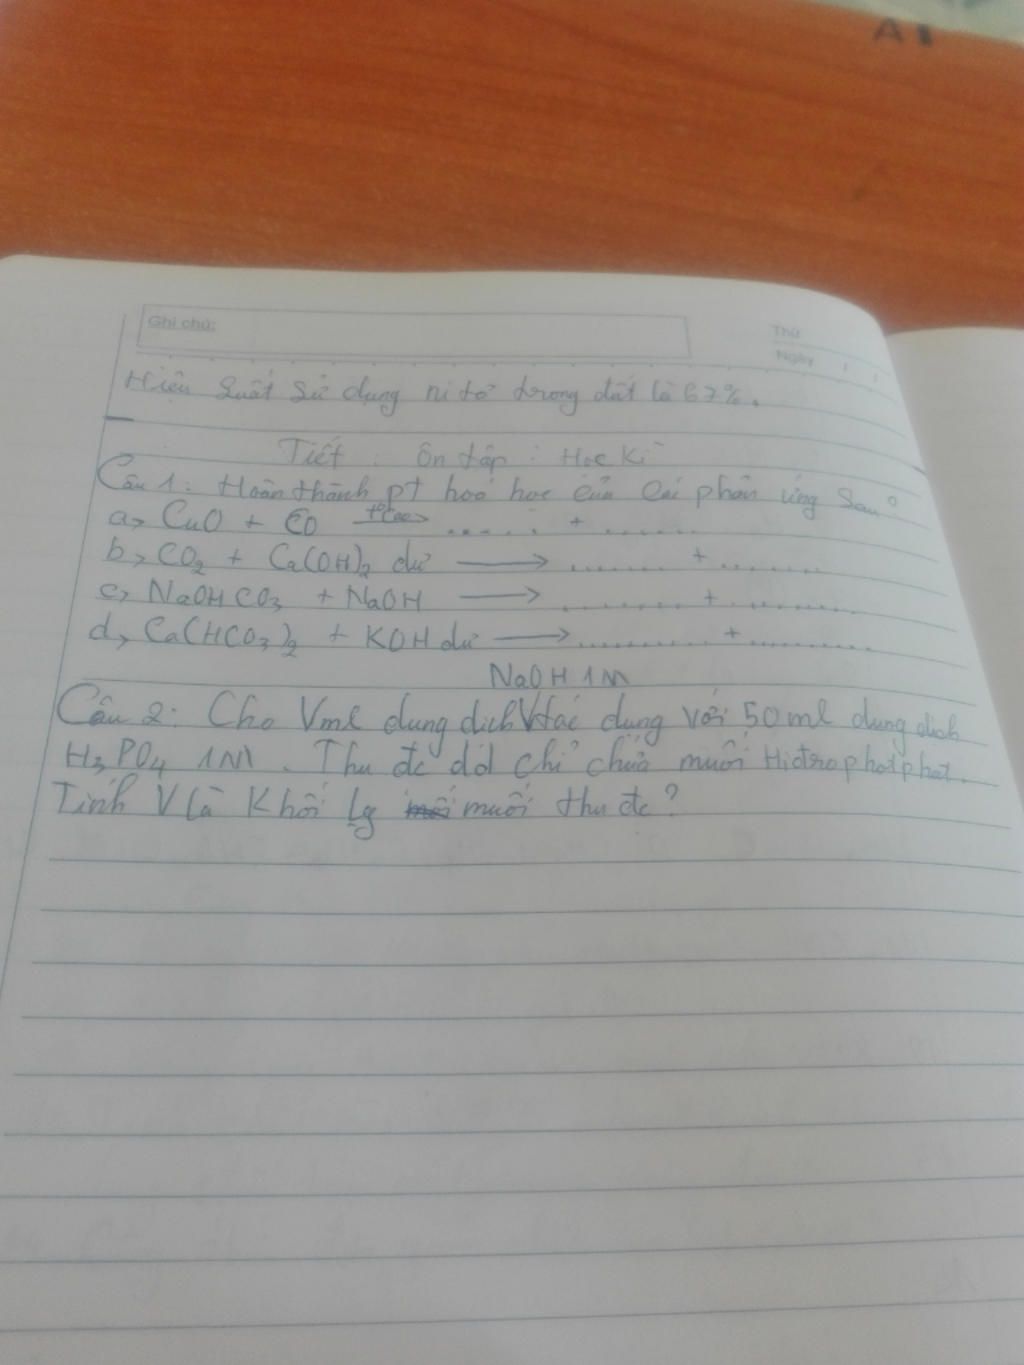 A
Ghi chú:
Thứ
Ngày / /
Hiệu suất sử dụng nitơ trong đất là 67%.
Tiết : Ôn tập : Học Kì
Câu 1: Hoàn thành pt hoá học của các phản ứng sau
a, CuO + CO t°cao→ ..... + .......
b, CO2 + Ca(OH)2 dư → ....... + ........
c, NaOHCO3 + NaOH → ........ + .........
d, Ca(HCO3)2 + KOH dư → ......... + .........
NaOH 1M
Câu 2: Cho Vml dung dịch V tác dụng với 50ml dung dịch
H3PO4 1M. Thu đc dd chỉ chứa muối Hiđrophotphat.
Tính V là Khối lg muối thu đc?